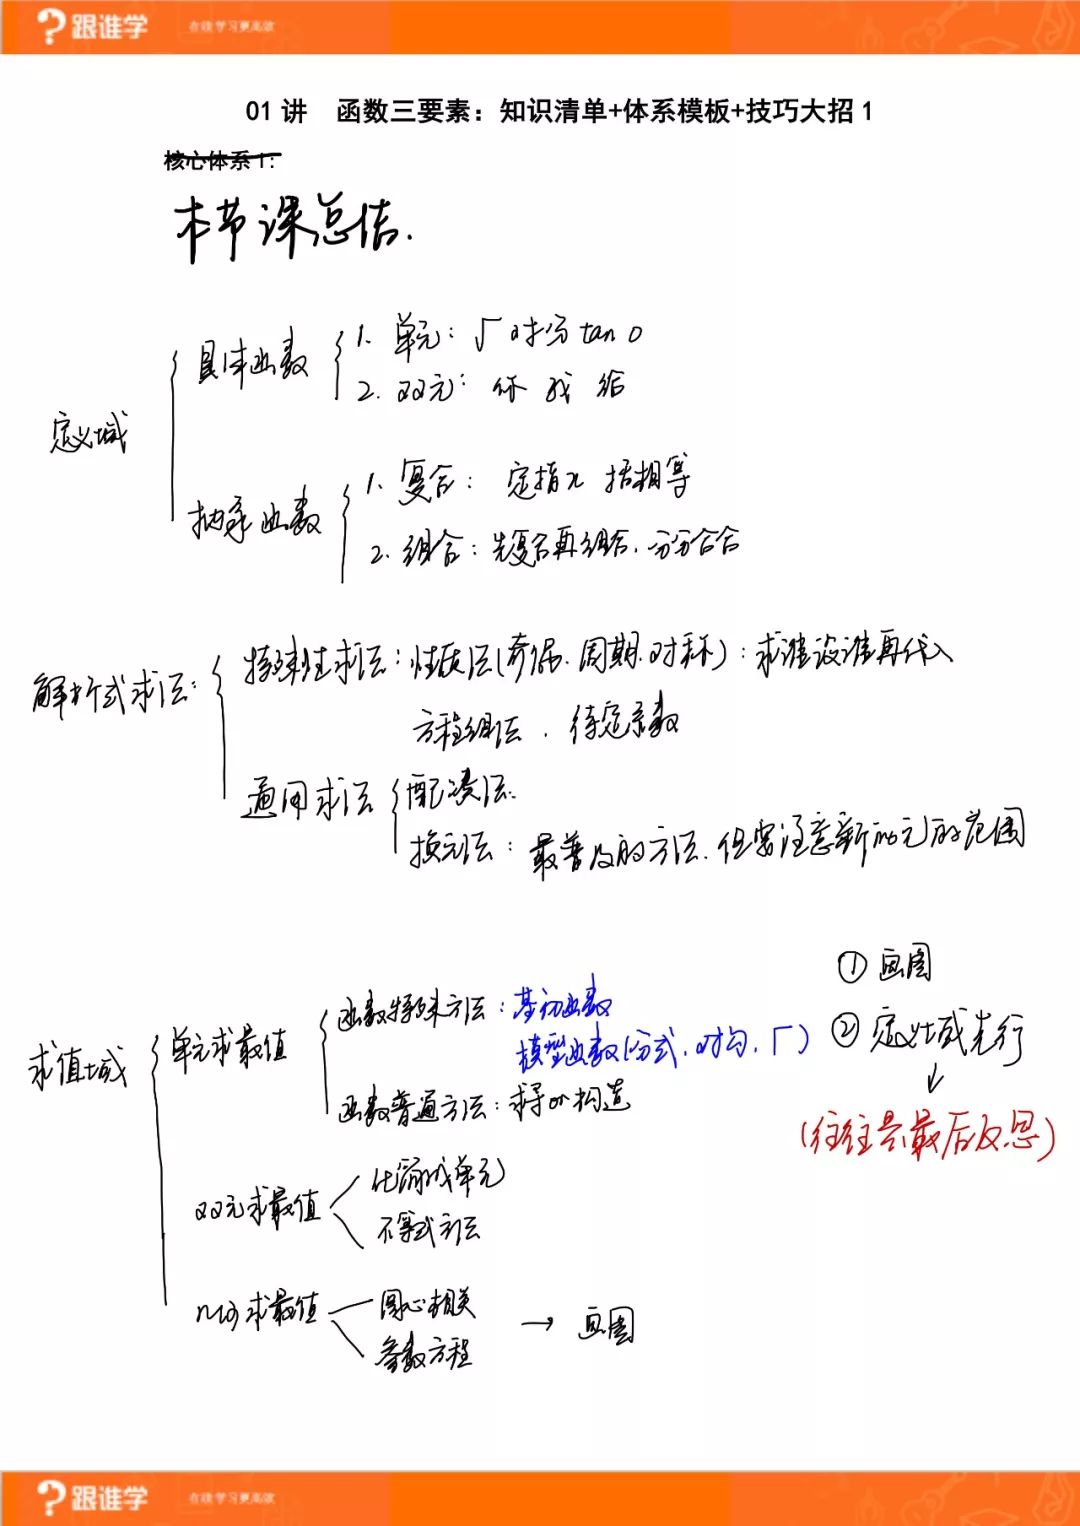 跟谁学 在线学习更高效
01 讲 函数三要素：知识清单+体系模板+技巧大招 1
核心体系 1:
本节课总结.
定义域
具体函数
1. 单元：√ 对分 tan 0
2. 双元：你 我 给
抽象函数
1. 复合：定指x 括相等
2. 组合：先复合再组合. 分分合合
解析式求法：
特殊性求法：性质法(奇偶. 周期. 对称)：求谁设谁再代入
方程组法. 待定系数
通用求法
配凑法.
换元法：最普及的方法. 但要注意新的元的范围
① 画图
② 定义域先行
↓
(往往是最后反思)
求值域
单元求最值
函数特殊方法：基初函数
模型函数(分式. 对勾. √)
函数普通方法：求导or构造
双元求最值
化简成单元
不等式方法
求最值
圆心相关
参数方程
→ 画图
跟谁学 在线学习更高效